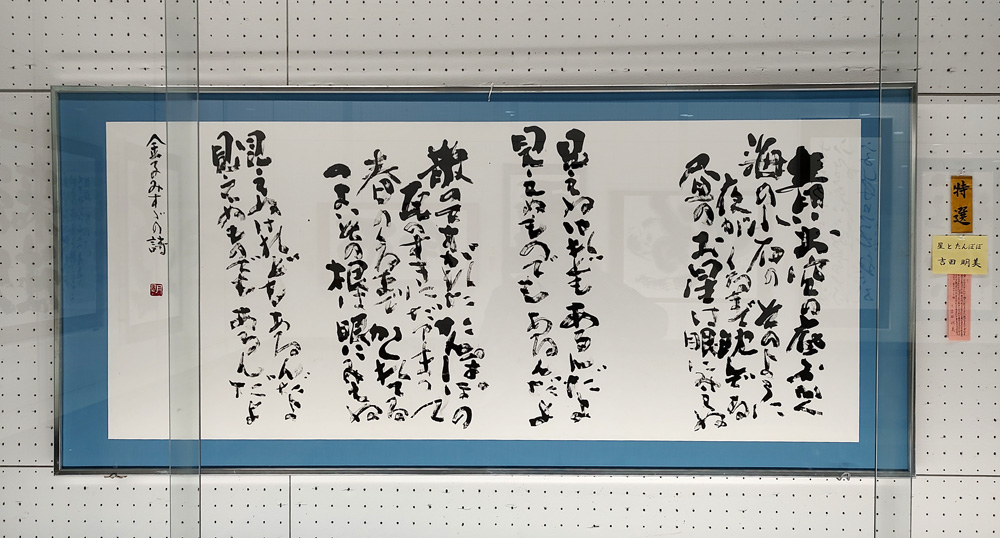 青いお空の底ふかく
海の小石のそのように
夜がくるまで沈んでる
昼のお星は眼にみえぬ
見えぬけれどもあるんだよ
見えぬものでもあるんだよ
散ってすがれたたんぽぽの
瓦のすきにだァまって
春のくるまでかくれてる
つよいその根は眼にみえぬ
見えぬけれどもあるんだよ
見えぬものでもあるんだよ
金子みすゞの詩
特選
星とたんぽぽ
吉田明美